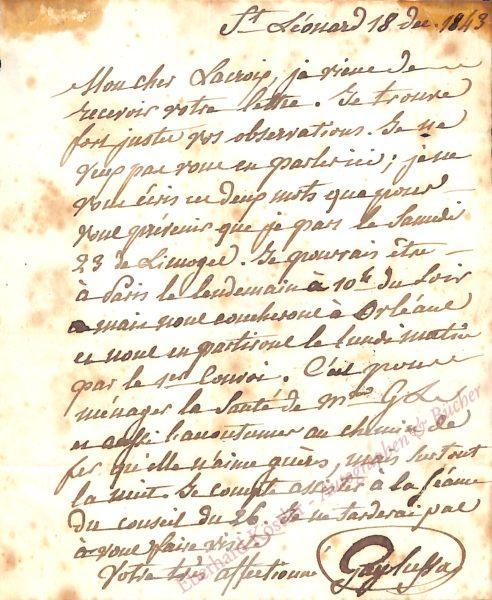 St Léonard 18 déc. 1843
Mon cher Lacroix, je viens de
recevoir votre lettre. Je trouve
fort justes vos observations. Je ne
veux pas vous en parler ici; je ne
vous écris ces deux mots que pour
vous prévenir que je pars le Samedi
23 de Limoges. Je pourrais être
à Paris le lendemain à 10h du soir
mais nous coucherons à Orléans
et nous en partirons le lundi matin
par le 1er convoi. C'est pour
ménager la santé de Mme G L
et aussi l'accoutumer au chemin de
fer qu'elle n'aime guères, mais surtout
la nuit. Je compte assister à la séance
du conseil du 26 et ne tarderai pas
à vous faire visite.
Votre très affectionné GayLussac
Eberhard Köstler - Autographen & Bücher